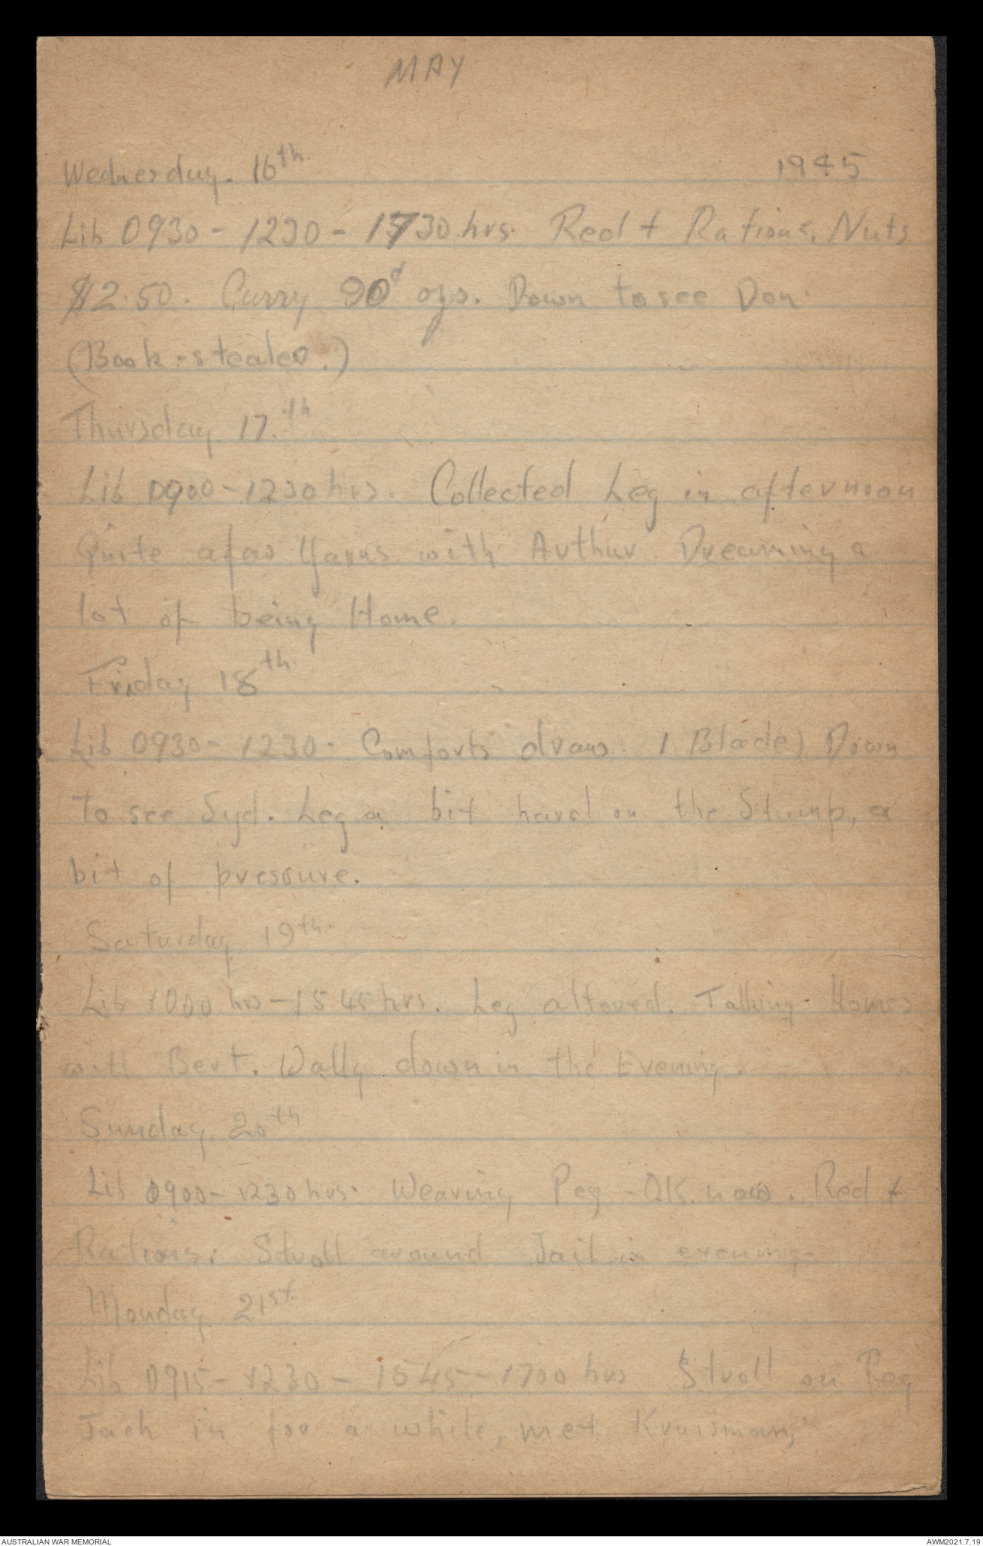 MAY
Wednesday. 16th. 1945
Lib 0930 - 1230 - 1730 hrs. Red + Rations. Nuts
$2.50. Curry 90 ozs. Down to see Don.
(Book-stealer.)
Thursday 17.th
Lib 0900-1230 hrs. Collected Leg in afternoon
Quite a few Yarns with Arthur. Dreaming a
lot of being Home.
Friday 18th.
Lib 0930- 1230. Comforts draw. 1 Blade, Down
to see Syd. Leg a bit hard on the Stump, a
bit of pressure.
Saturday 19th.
Lib 1000 hrs-1545 hrs. Leg altered. Talking Homes
with Bert. Wally down in the Evening.
Sunday 20th
Lib 0900- 1230 hrs. Wearing Peg - OK. now. Red +
Rations. Stroll around Jail in evening.
Monday 21st.
Lib 0915- 1230 - 1545-1700 hrs Stroll on Peg
Jack in for a while, met
AUSTRALIAN WAR MEMORIAL AWM2021.7.19